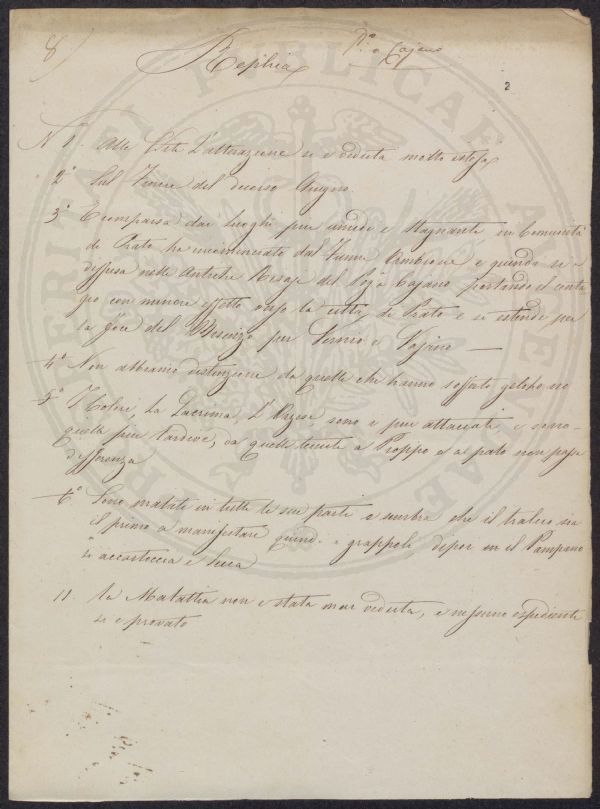 8)
Replica
P.o a Cajano
2
N 1. Alle Viti L'alterazione si è veduta molto estesa
2° Sul Finire del decorso Giugno.
3° È comparsa dai luoghi più umidi e Stagnanti in Comunità
di Prato ha incominciato dal Fiume Ombrone e quindi si è
diffusa nelle Antiche Risaje del Pog.o a Cajano, portando il conta
gio con minore effetto verso la città di Prato e si estende per
la foce del Bisenzio per Vernio e Vajano —
4° Non abbiamo distinzione da quelle che hanno sofferto gelo che no
5° I Colori, La Lacrima, L'Orzese sono e più attaccati, e sono
quelli più tardive, va quelle tenute a Pioppo e a palo non passa
differenza
6° Sono malate in tutte le sue parte e sembra che il tralcio sia
il primo a manifestare quindi i grappoli dipoi in il Pampano
si accartoccia e Secca
11. La Malattia non è stata mai veduta, e nessuno espediente
si è provato
PUBLICAE